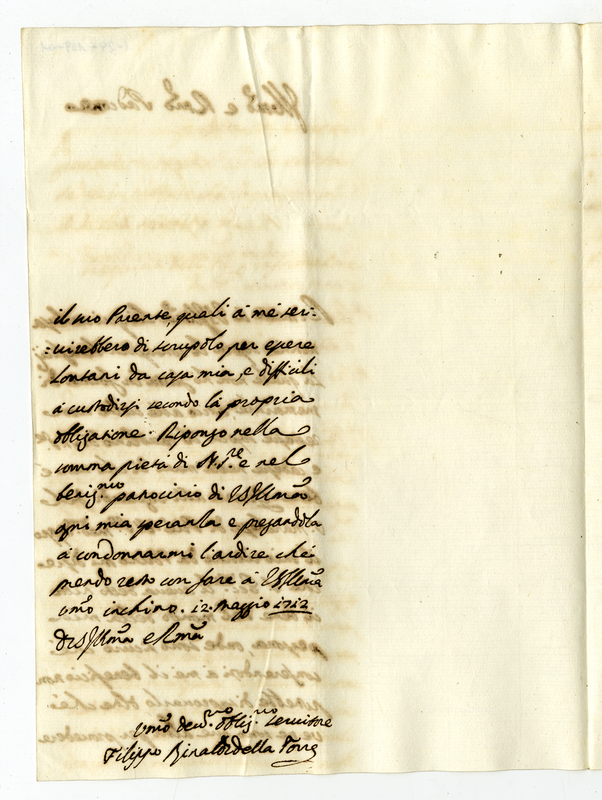 il suo Parente, quali à me ser=
=uirebbero di scrupolo per essere
lontani da casa mia, e difficili
à custodirsi secondo la propria
obligatione. Ripongo nella
somma pietà di N. S.re e nel
benig.mo patrocinio di VS Illma
ogni mia speranza e pregandola
à condonnarmi l'ardire che
prendo resto con fare à VS Illma
Vmo inchino. 12. Maggio 1712
Di VS Illma e Rma
Vmo deu.mo oblig.mo seruitore
Filippo Rinaldi della Torre